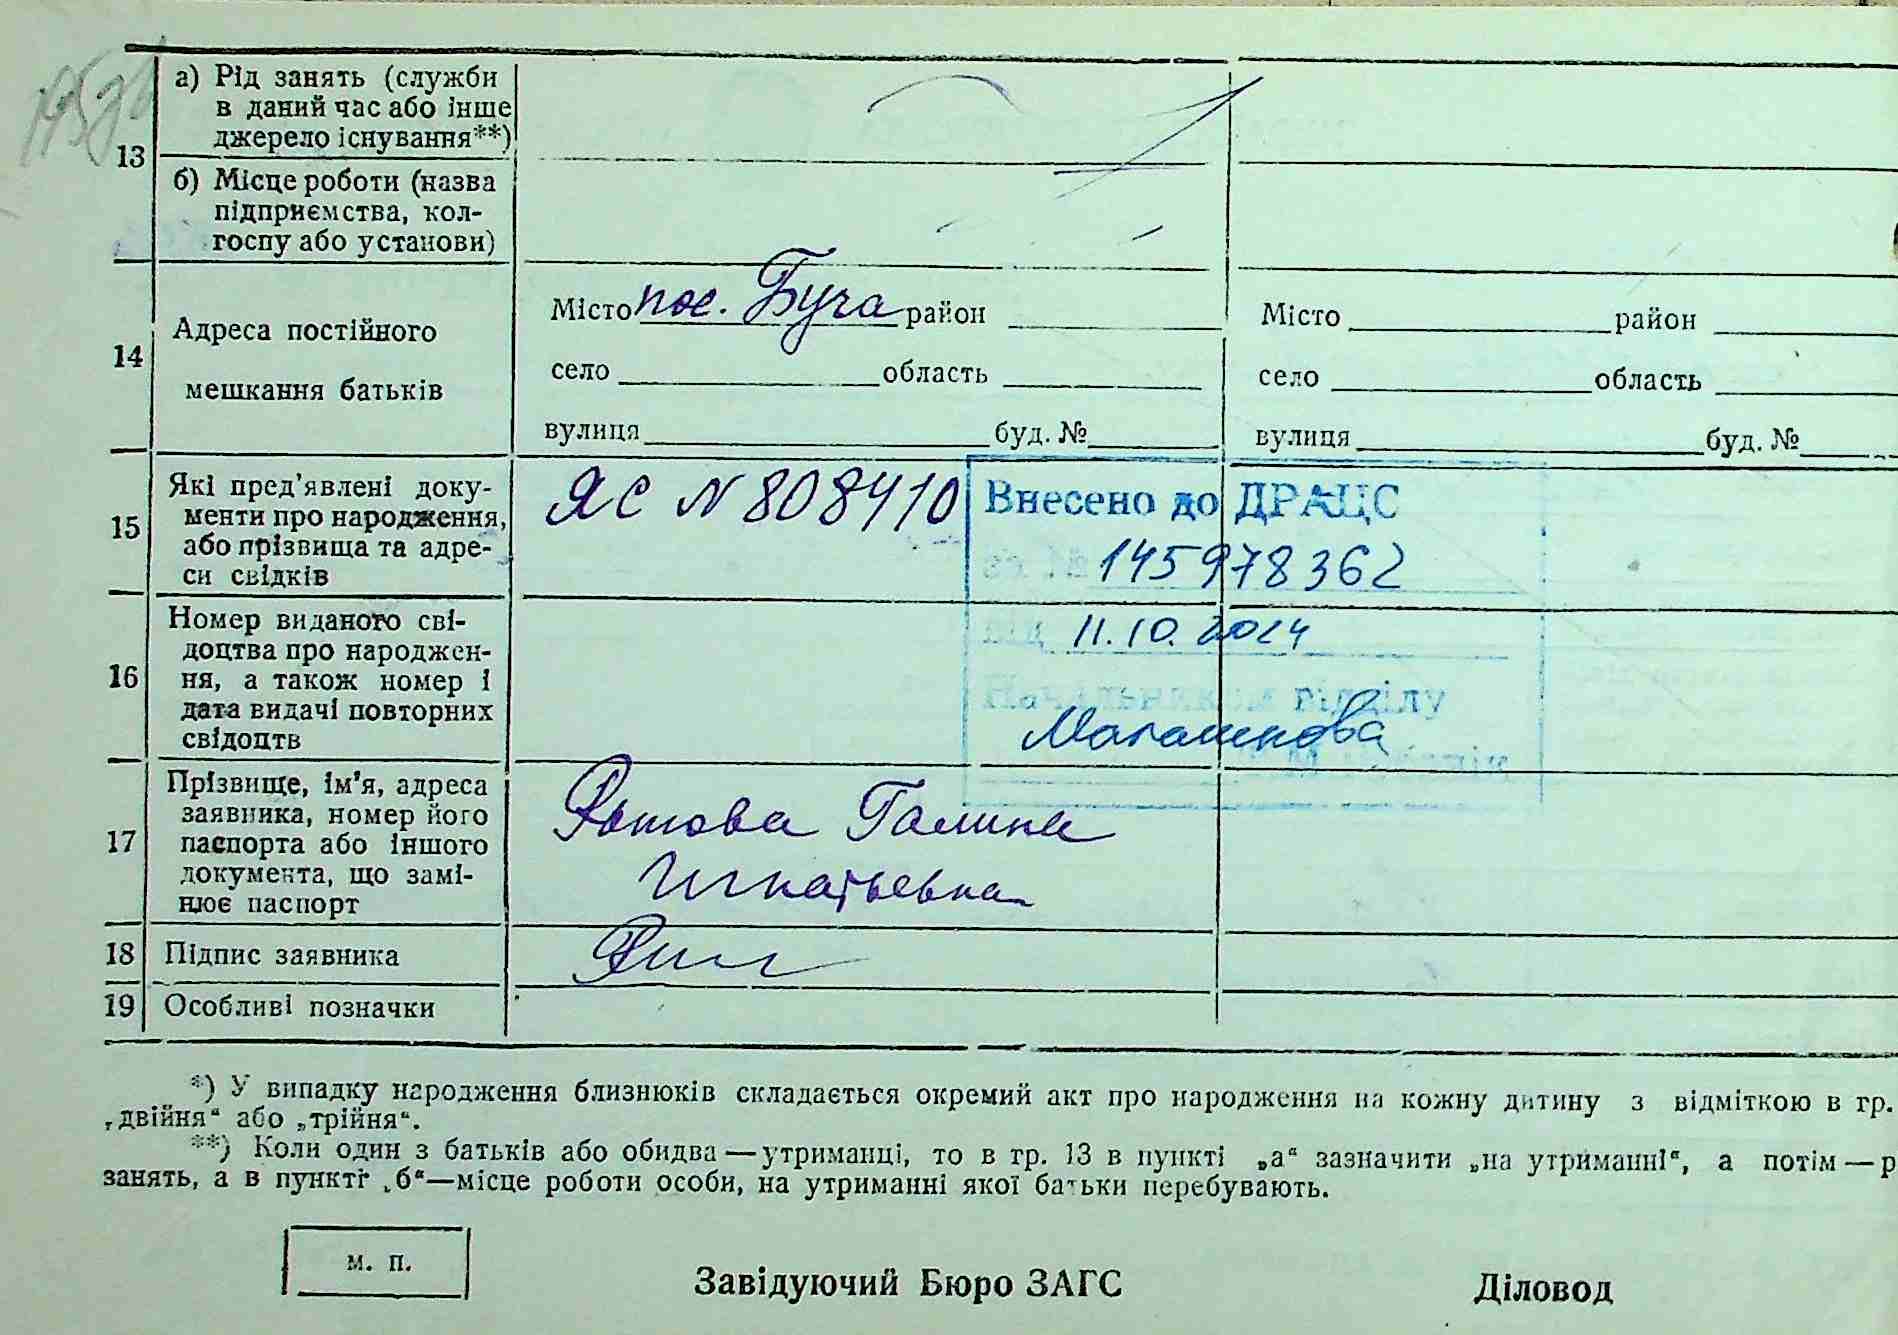 13
а) Рід занять (служби
в даний час або інше
джерело існування**)
б) Місце роботи (назва
підприємства, кол-
госпу або установи)
14
Адреса постійного
мешкання батьків
Місто пос. Буча район
село область
вулиця буд. №
Місто район
село область
вулиця буд. №
15
Які пред'явлені доку-
менти про народження,
або прізвища та адре-
си свідків
ЯС N 808410
Внесено до ДРАЦС
за № 145978362
від 11.10.2024
Начальником відділу
16
Номер виданого сві-
доцтва про народжен-
ня, а також номер і
дата видачі повторних
свідоцтв
17
Прізвище, ім'я, адреса
заявника, номер його
паспорта або іншого
документа, що замі-
нює паспорт
Галина
Игнатьевна
18 Підпис заявника
19 Особливі позначки
*) У випадку народження близнюків складається окремий акт про народження на кожну дитину з відміткою в гр.
„двійня“ або „трійня“.
**) Коли один з батьків або обидва — утриманці, то в гр. 13 в пункті „а“ зазначити „на утриманні“, а потім — р
занять, а в пункті „б“—місце роботи особи, на утриманні якої батьки перебувають.
м. п.
Завідуючий Бюро ЗАГС
Діловод